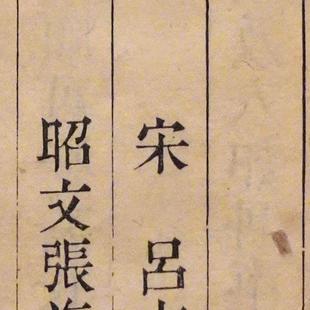 宋 呂
昭文張